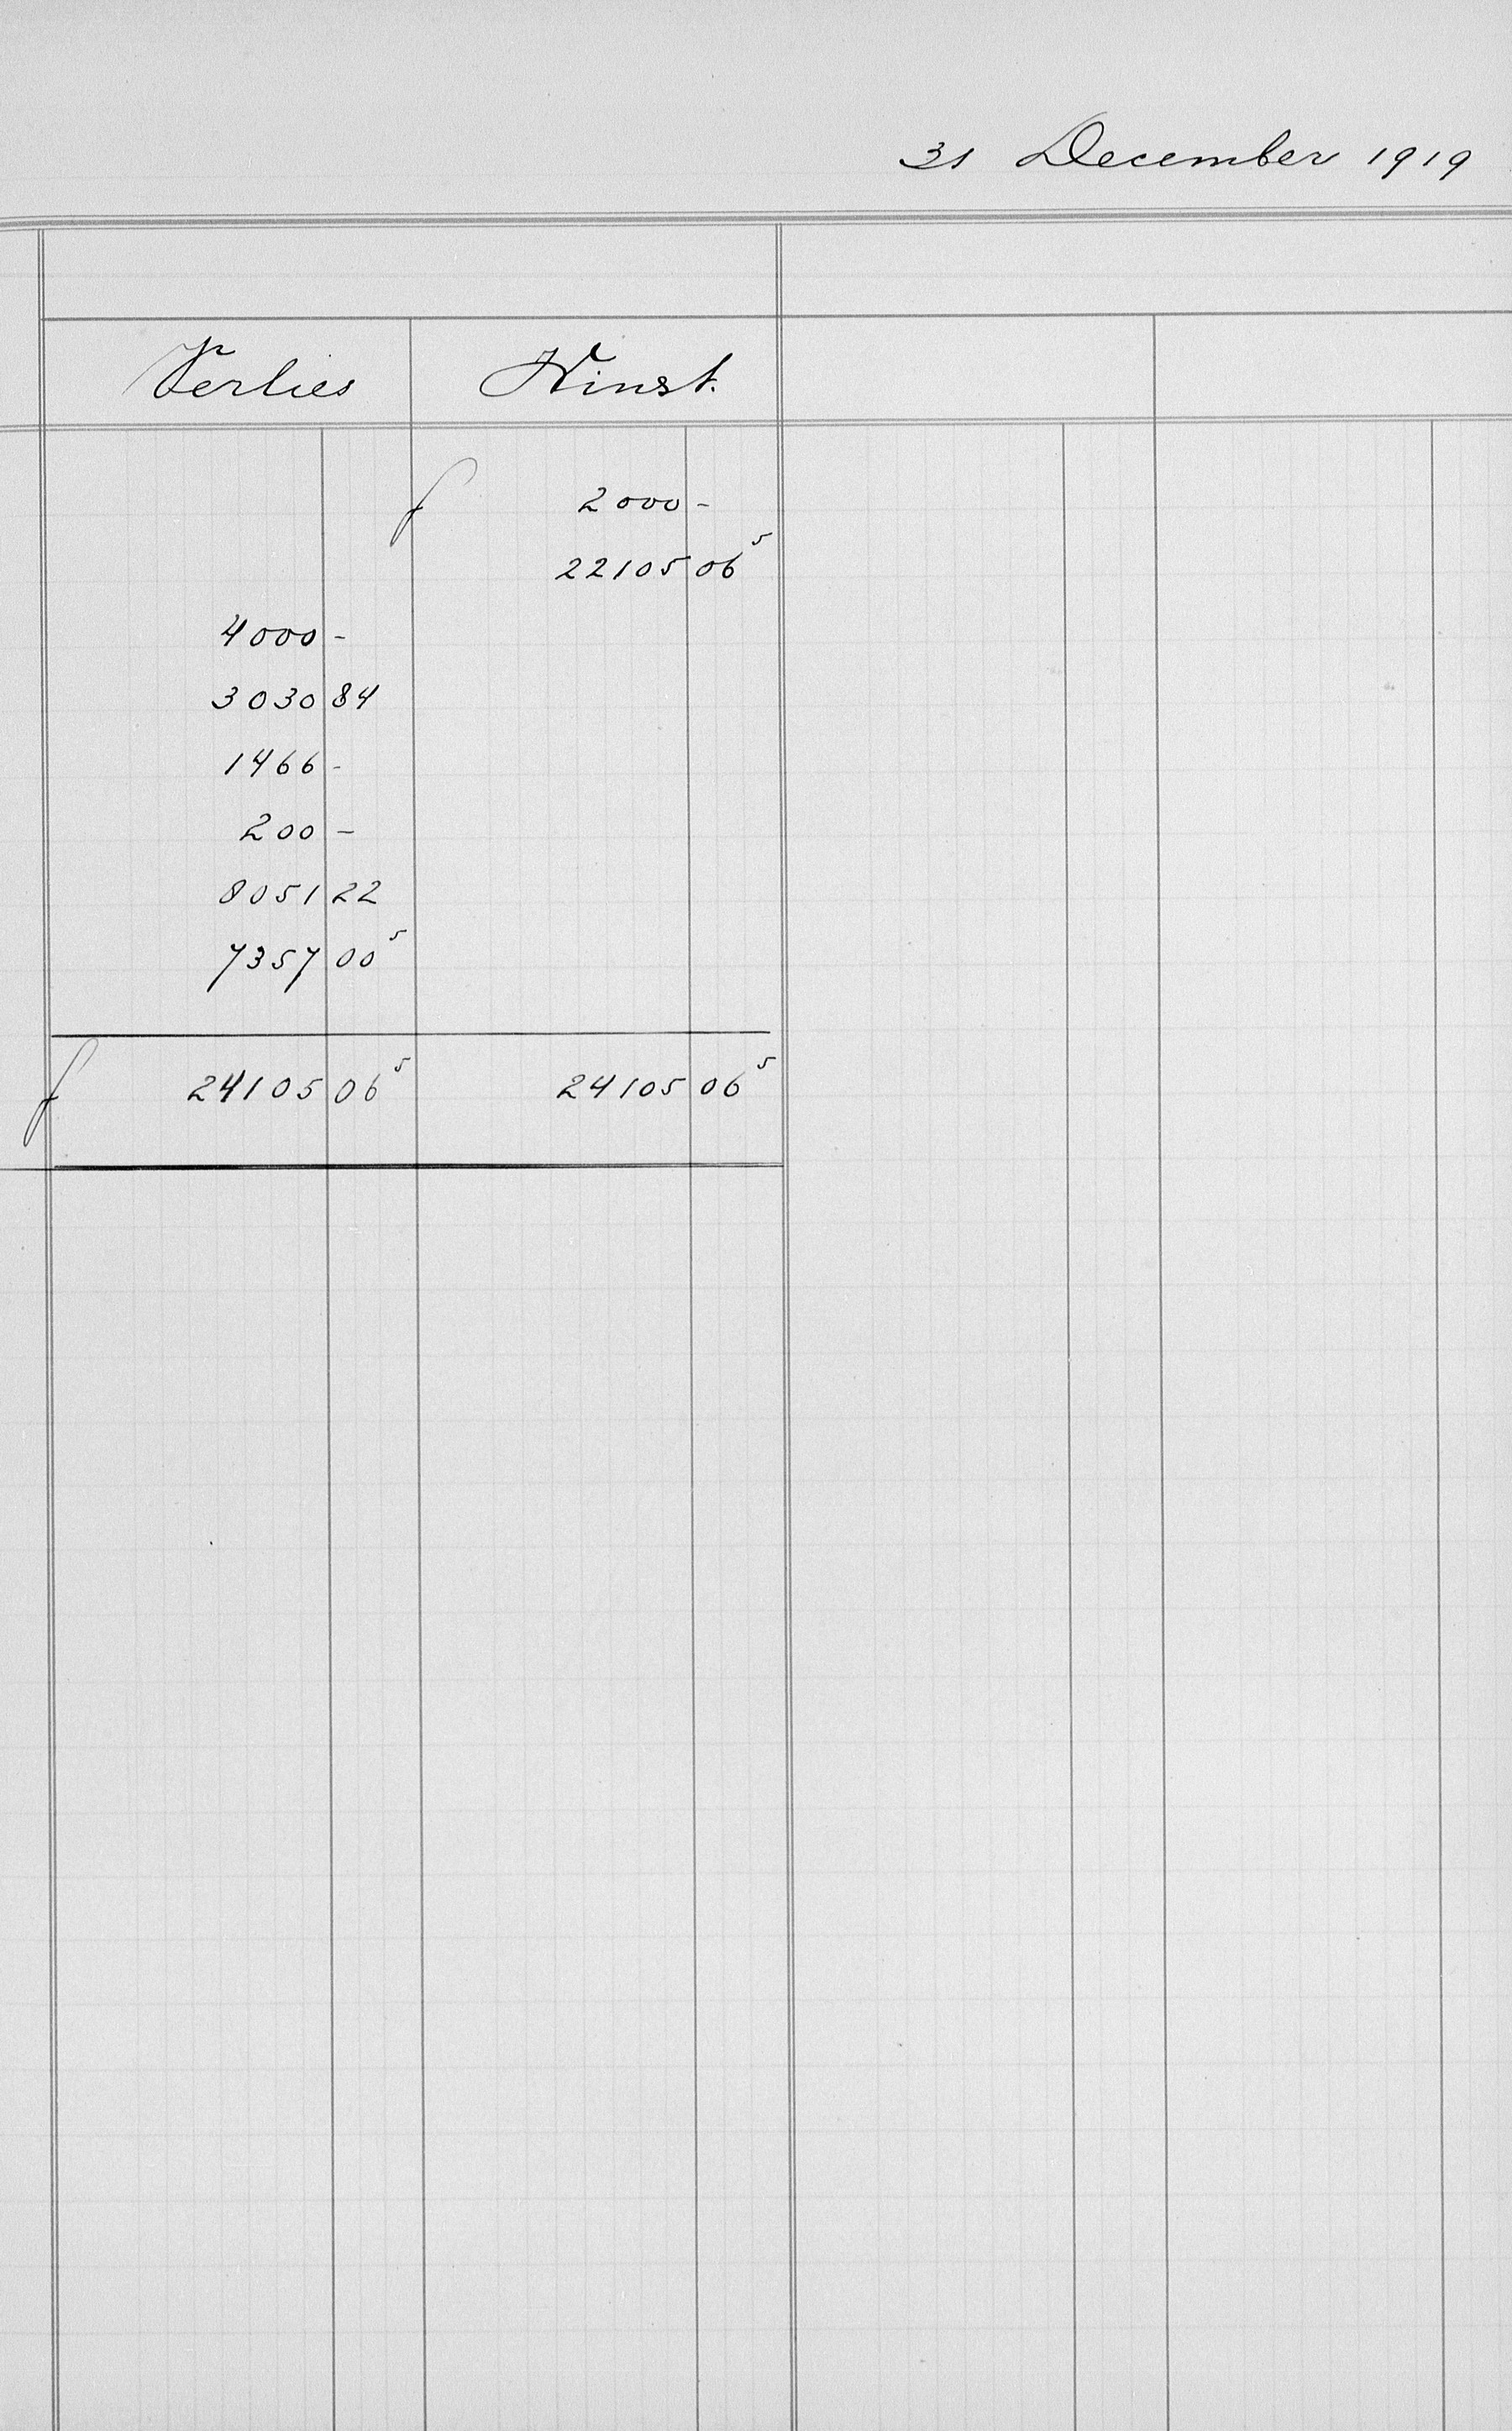 31 December 1919
Verlies Winst.
f 2000 -
22105 06⁵
4000 -
3030 84
1466 -
200 -
8051 22
7357 00⁵
f 24105 06⁵ 24105 06⁵